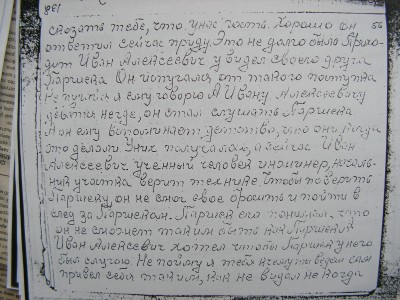 381
56
сказать тебе, что у нас гость. Хорошо он
ответил сейчас приду. Это не долго было Прихо-
дит Иван Алексеевич увидел своего друга
Паршека Он испугался от такого поступка
Не учился я ему говорю А Ивану Алексеевичу
деватся негде, он стал слушать Паршека
А он ему вспоминает детства, что они, когда
это делали У них получалось, а сейчас Иван
Алексеевич ученный человек инжинер, началь-
ник участка верит технике. Чтобы поверить
Паршеку, он не смог свое бросить и пойти в
след за Паршеком. Паршек его понимал, что
он не сможет таким быть как Паршек
Иван Алексеевич хотел чтобы Паршек у него
был слугою Не пойму я тебя к чему ты ведь сам
привел себя таким, как не видал не когда